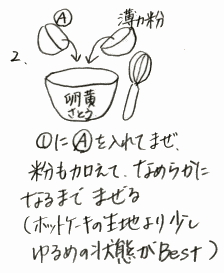 Ⓐ 薄力粉
2.
卵黄
さとう
①にⒶを入れてまぜ、
粉も加えて、なめらかに
なるまで まぜる
(ホットケーキの生地より少し
ゆるめの状態がBest)